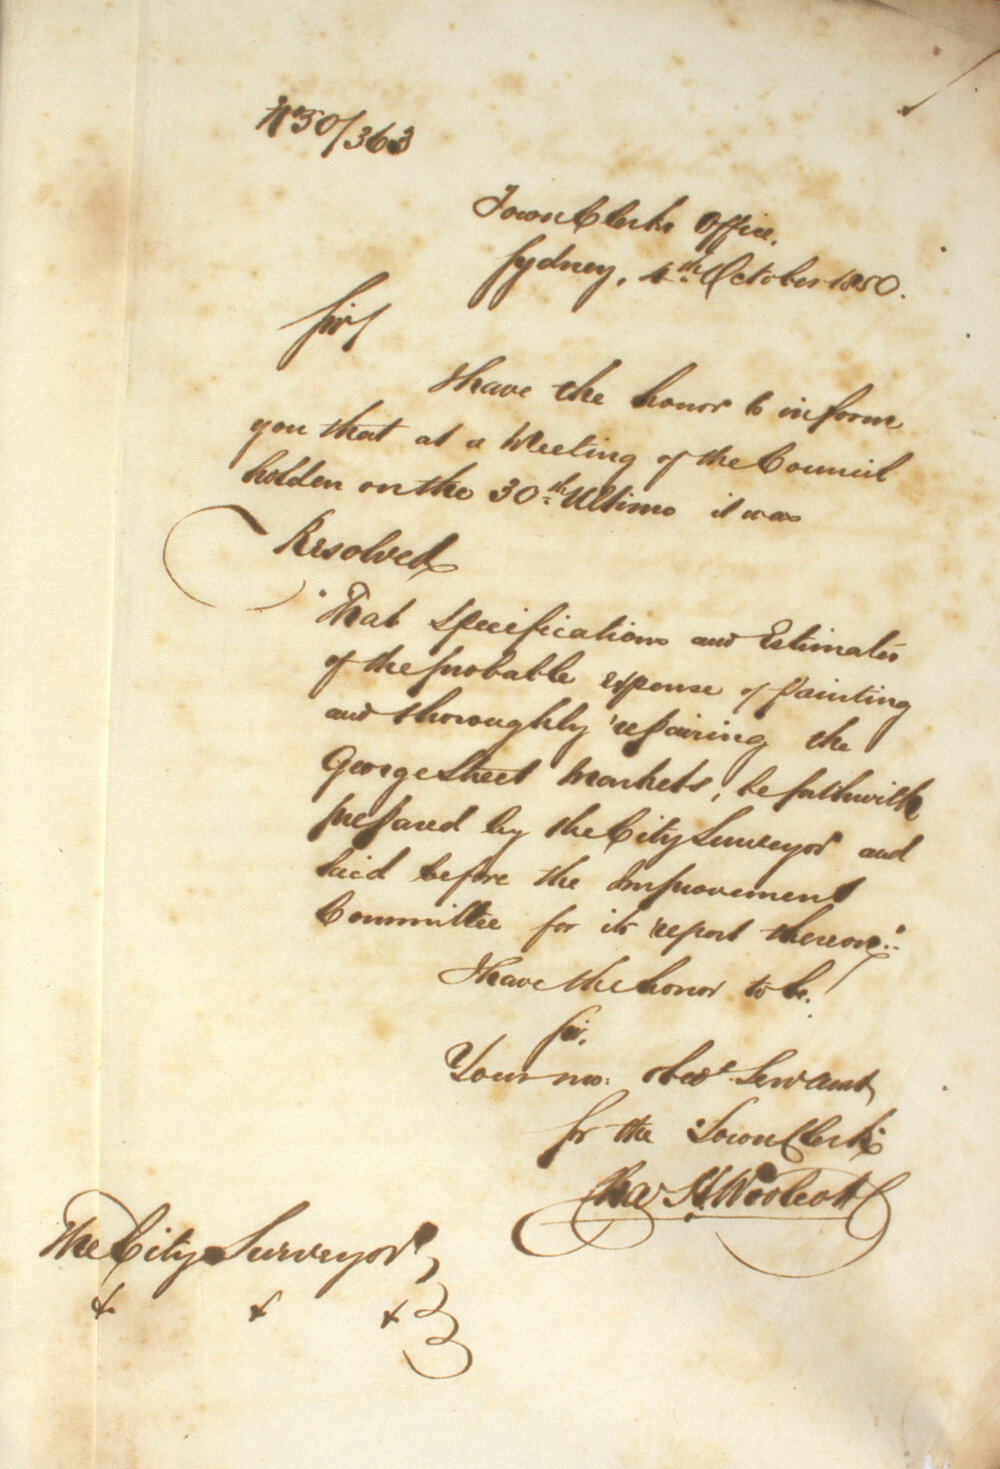 No 50/363
Town Clerks Office,
Sydney, 4th October 1850.
Sir/
I have the honor to inform
you that at a Meeting of the Council
holden on the 30th Ultimo it was
Resolved
"That Specifications and Estimates
of the probable expense of painting
and thoroughly repairing the
George Street Markets, be forthwith
prepared by the City Surveyor and
laid before the Improvement
Committee for its report thereon."
I have the honor to be.
Sir,
Your mo: obedt. Servant,
for the Town Clerk
Chas H Woolcott
The City Surveyor,
&c &c &c